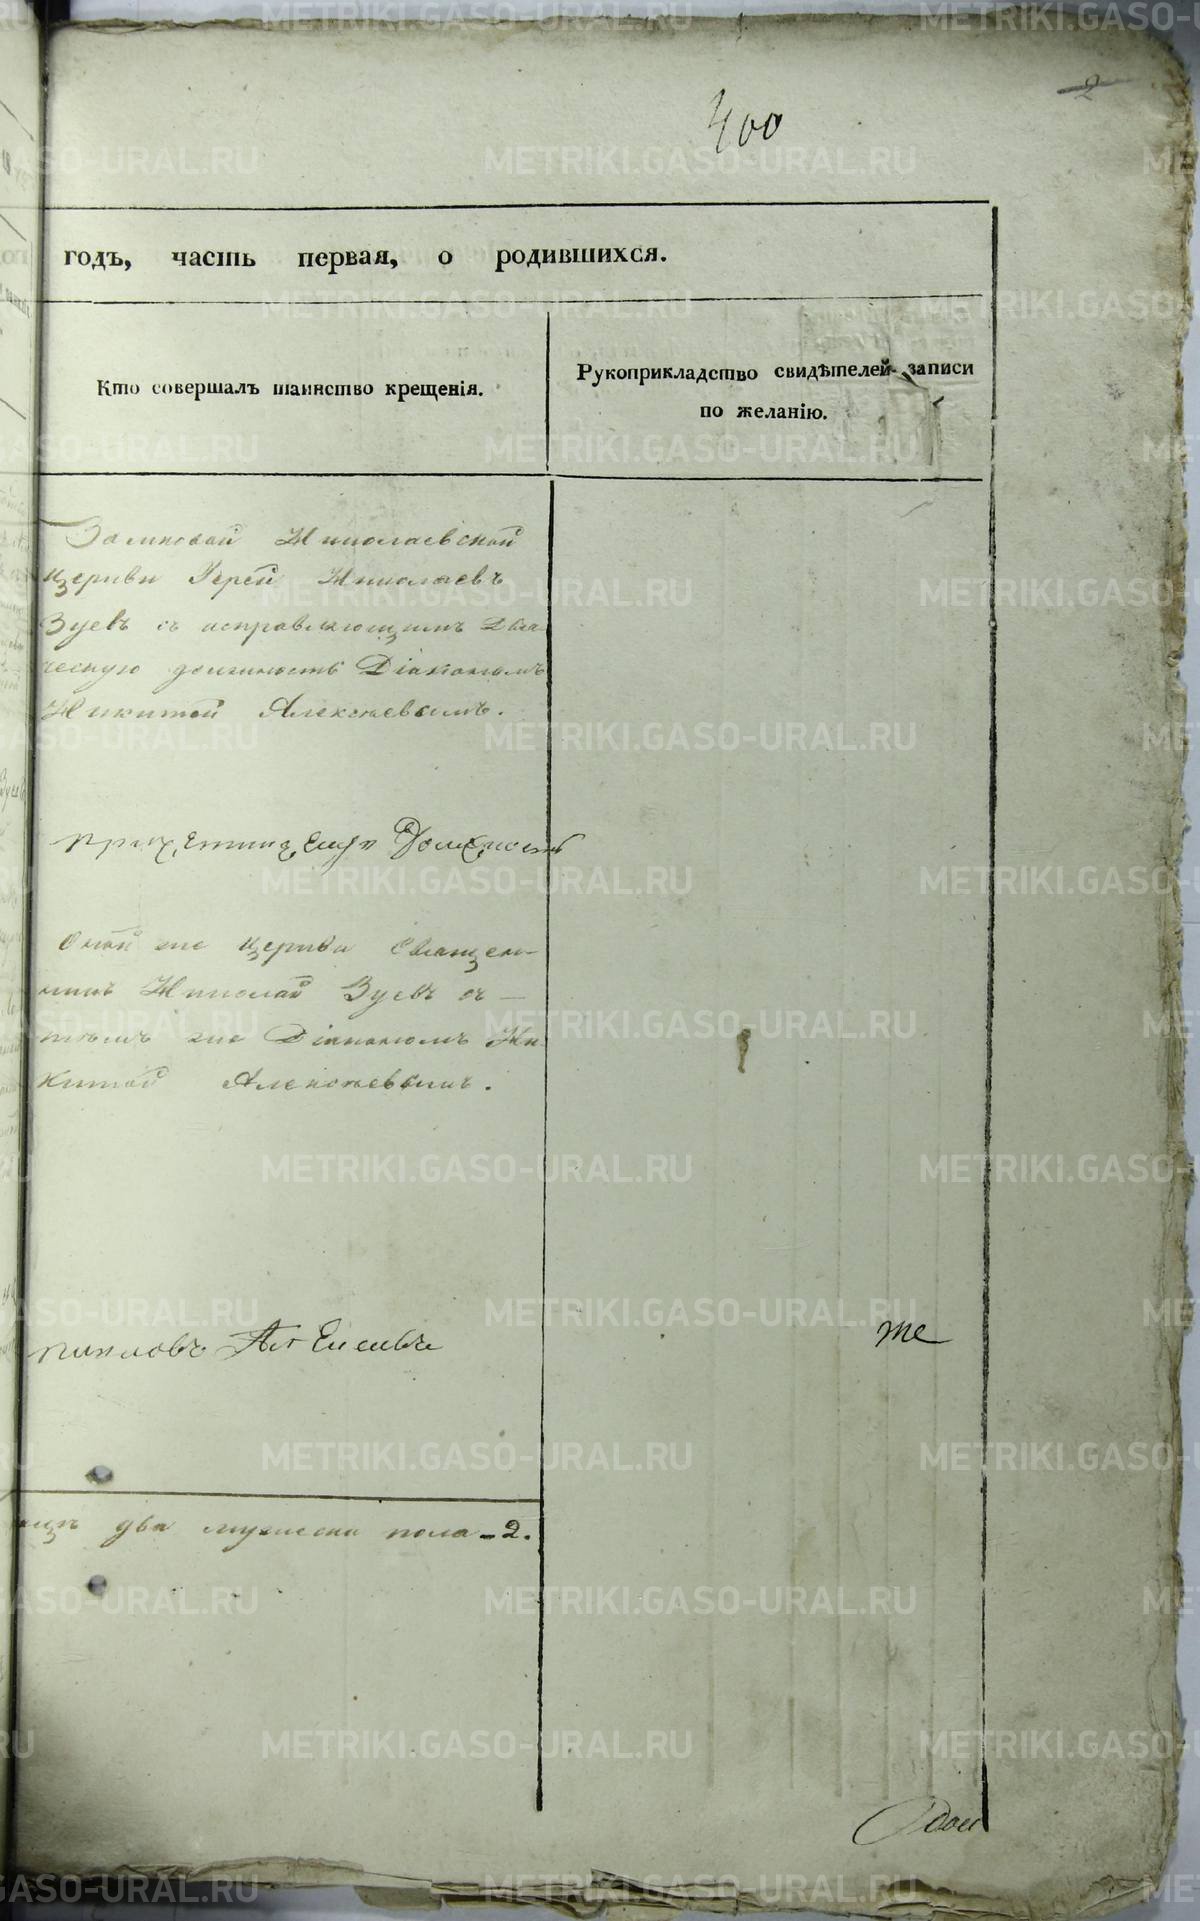 2
400
годъ, часть первая, о родившихся.
Кто совершалъ таинство крещенія.
Рукоприкладство свидѣтелей записи
по желанію.
Николаевской
церкви Іерей Николаевъ
Зуевъ съ исправляющимъ Дья-
ческую должность Діакономъ
Никитой Алексѣевымъ.
Должность
Оной же церкви Священ-
никъ Николай Зуевъ съ
тѣмъ же Діакономъ Ни-
китой Алексѣевымъ.
же
два мужеска пола - 2.
METRIKI.GASO-URAL.RU